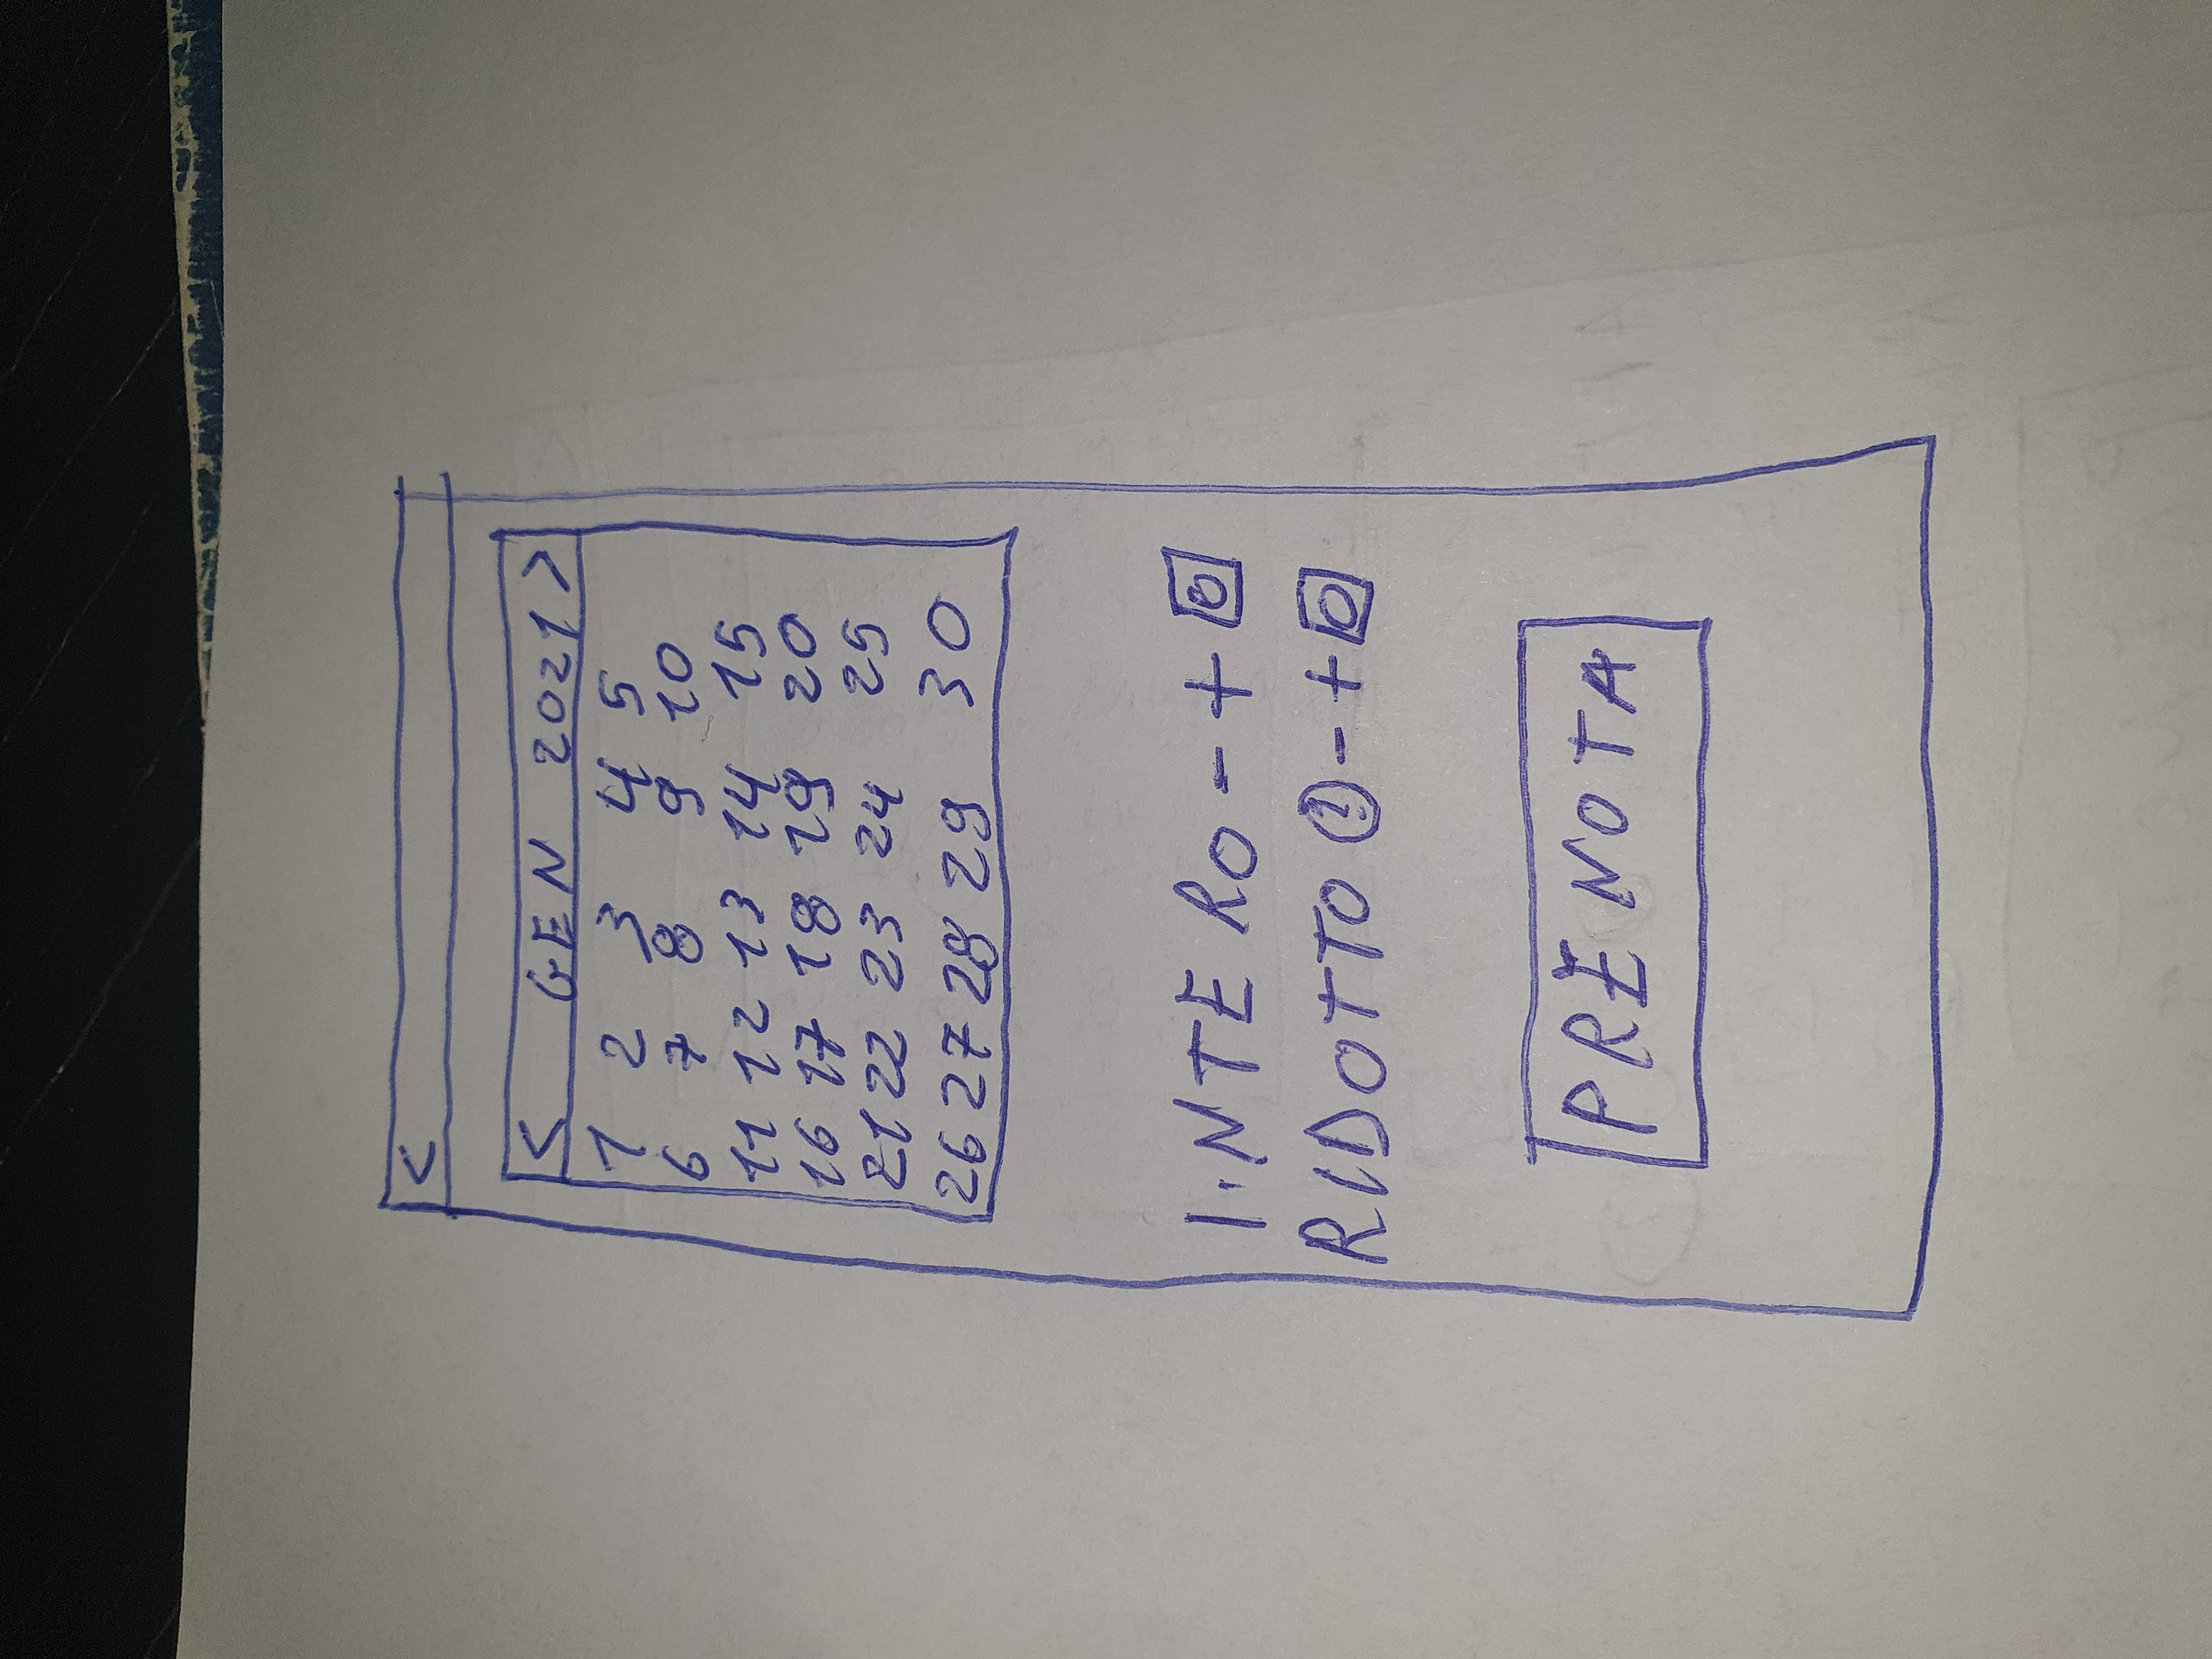 <
< GEN 2021 >
1 2 3 4 5
6 7 8 9 10
11 12 13 14 15
16 17 18 19 20
21 22 23 24 25
26 27 28 29 30
INTERO - + 0
RIDOTTO - + 0
PRENOTA